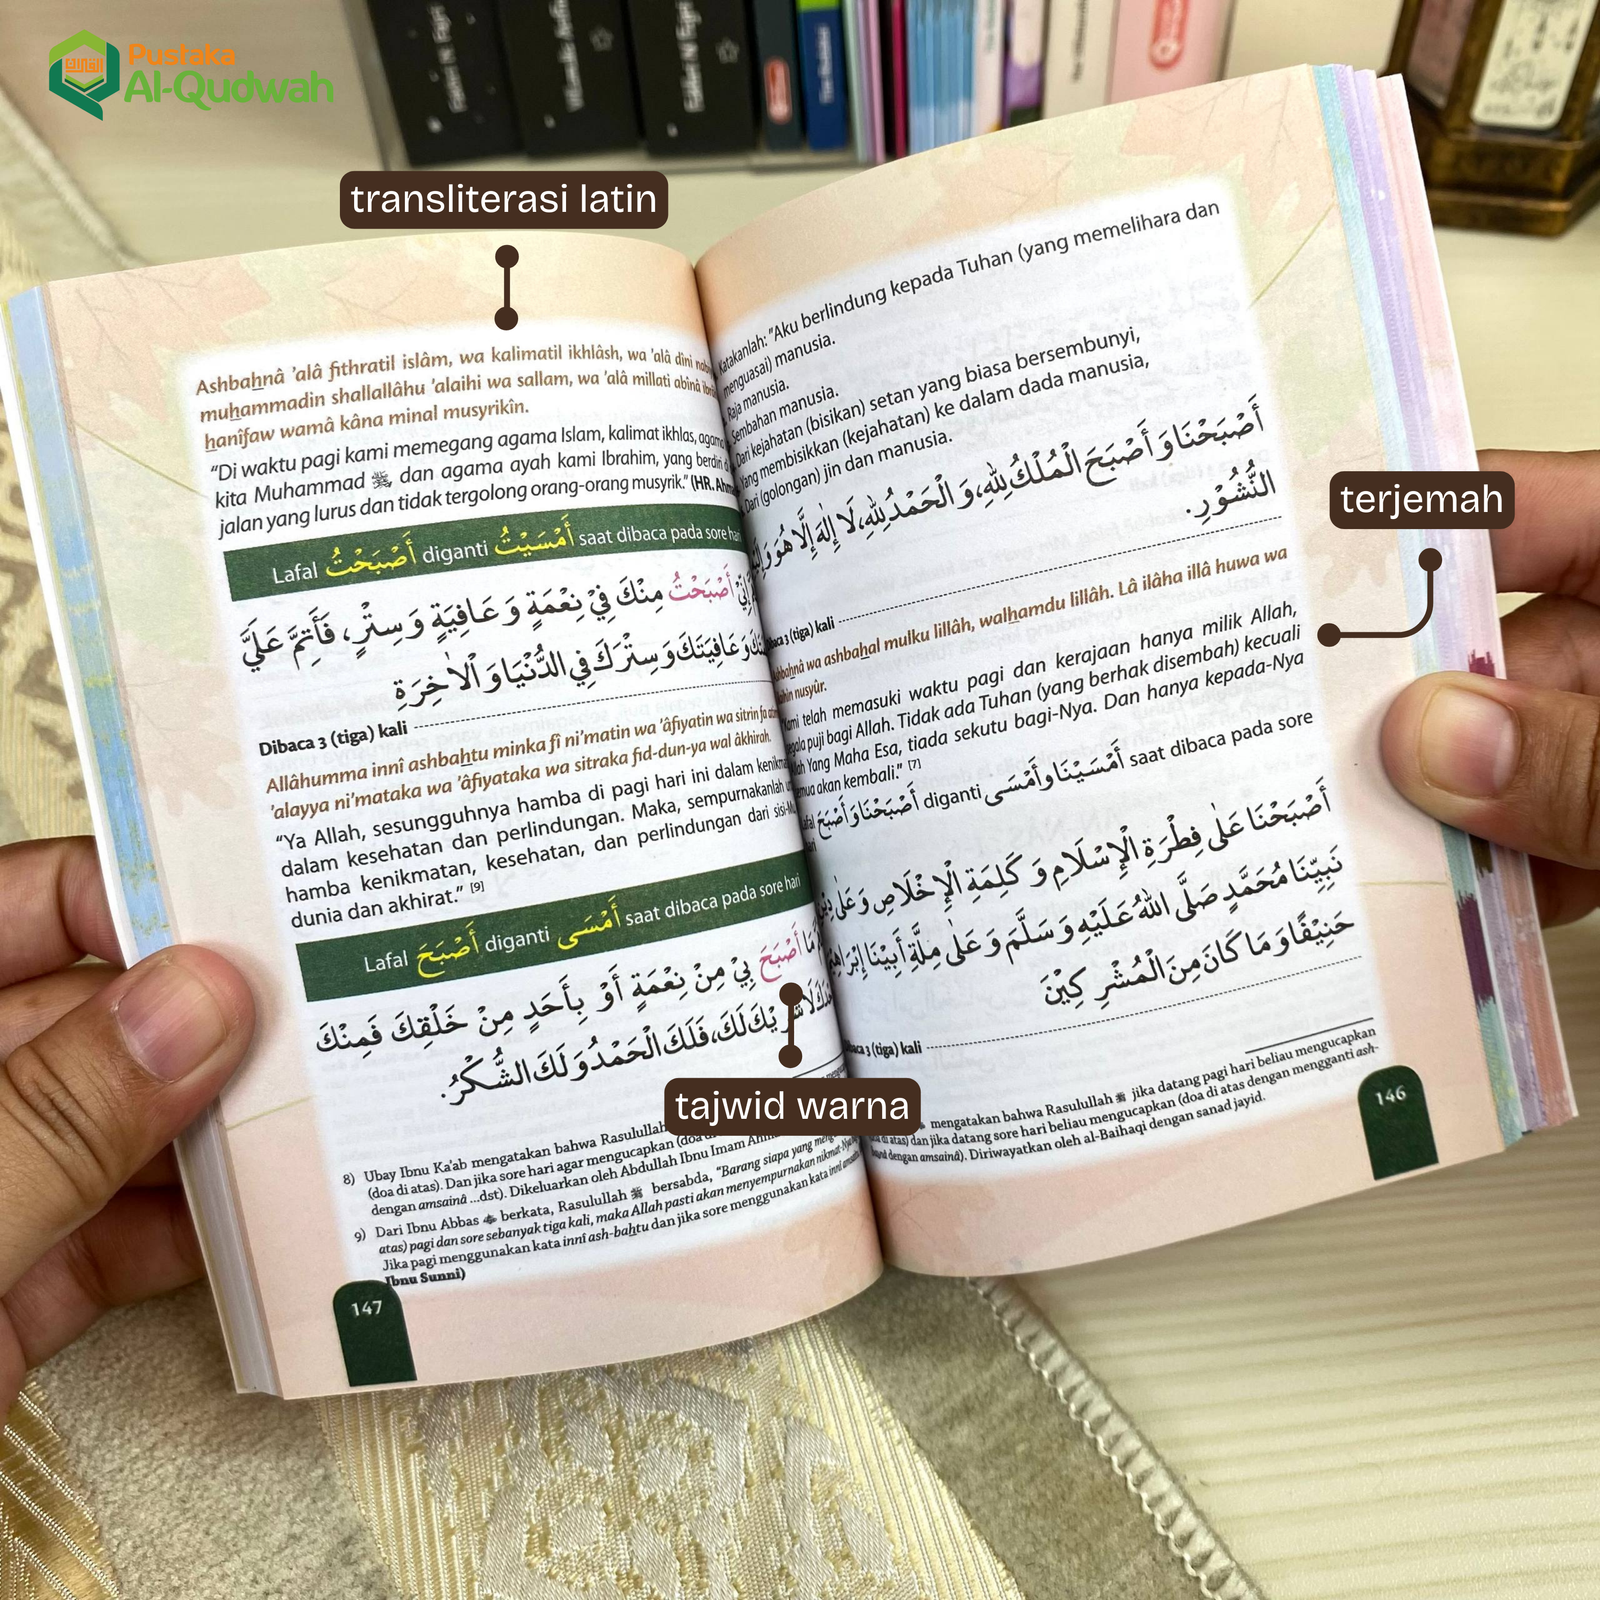 Pustaka
Al-Qudwah
transliterasi latin
terjemah
tajwid warna
Katakanlah: "Aku berlindung kepada Tuhan (yang memelihara dan
menguasai) manusia.
Raja manusia.
Sembahan manusia.
Dari kejahatan (bisikan) setan yang biasa bersembunyi,
Yang membisikkan (kejahatan) ke dalam dada manusia,
Dari (golongan) jin dan manusia.
أَصْبَحْنَا وَ أَصْبَحَ الْمُلْكُ لِلّٰهِ، وَ الْحَمْدُ لِلّٰهِ، لَا إِلٰهَ إِلَّا هُوَ
النُّشُوْرِ.
Dibaca 3 (tiga) kali
wa ashbahal mulku lillâh, walhamdu lillâh. Lâ ilâha illâ huwa wa
nusyûr.
telah memasuki waktu pagi dan kerajaan hanya milik Allah,
segala puji bagi Allah. Tidak ada Tuhan (yang berhak disembah) kecuali
Yang Maha Esa, tiada sekutu bagi-Nya. Dan hanya kepada-Nya
akan kembali." [7]
أَصْبَحْنَا وَ أَصْبَحَ diganti أَمْسَيْنَا وَ أَمْسَى saat dibaca pada sore
أَصْبَحْنَا عَلٰى فِطْرَةِ الْإِسْلَامِ وَ كَلِمَةِ الْإِخْلَاصِ وَ عَلٰى دِيْنِ
نَبِيِّنَا مُحَمَّدٍ صَلَّى اللّٰهُ عَلَيْهِ وَ سَلَّمَ وَ عَلٰى مِلَّةِ أَبِيْنَا إِبْرَاهِيْمَ
حَنِيْفًا وَ مَا كَانَ مِنَ الْمُشْرِكِيْنَ
Dibaca 3 (tiga) kali
mengatakan bahwa Rasulullah ﷺ jika datang pagi hari beliau mengucapkan
di atas) dan jika datang sore hari beliau mengucapkan (doa di atas dengan mengganti ash-
dengan amsainâ). Diriwayatkan oleh al-Baihaqi dengan sanad jayid.
146
Ashbahnâ 'alâ fithratil islâm, wa kalimatil ikhlâsh, wa 'alâ dîni
muhammadin shallallâhu 'alaihi wa sallam, wa 'alâ millati abînâ
hanîfaw wamâ kâna minal musyrikîn.
"Di waktu pagi kami memegang agama Islam, kalimat ikhlas, agama
kita Muhammad ﷺ, dan agama ayah kami Ibrahim, yang berdiri
jalan yang lurus dan tidak tergolong orang-orang musyrik." (HR. Ahmad
Lafal أَصْبَحْتُ diganti أَمْسَيْتُ saat dibaca pada sore hari
إِنِّيْ أَصْبَحْتُ مِنْكَ فِيْ نِعْمَةٍ وَ عَافِيَةٍ وَ سِتْرٍ، فَأَتِمَّ عَلَيَّ
وَ عَافِيَتَكَ وَ سِتْرَكَ فِي الدُّنْيَا وَ الْاٰخِرَةِ
Dibaca 3 (tiga) kali
Allâhumma innî ashbahtu minka fî ni'matin wa 'âfiyatin wa sitrin fa
'alayya ni'mataka wa 'âfiyataka wa sitraka fid-dun-ya wal âkhirah.
"Ya Allah, sesungguhnya hamba di pagi hari ini dalam
dalam kesehatan dan perlindungan. Maka, sempurnakanlah
hamba kenikmatan, kesehatan, dan perlindungan dari
dunia dan akhirat." [9]
Lafal أَصْبَحَ diganti أَمْسَى saat dibaca pada sore hari
مَا أَصْبَحَ بِيْ مِنْ نِعْمَةٍ أَوْ بِأَحَدٍ مِنْ خَلْقِكَ فَمِنْكَ
لَا شَرِيْكَ لَكَ، فَلَكَ الْحَمْدُ وَ لَكَ الشُّكْرُ.
8) Ubay Ibnu Ka'ab mengatakan bahwa Rasulullah
(doa di atas). Dan jika sore hari agar mengucapkan (doa
dengan amsainâ ...dst). Dikeluarkan oleh Abdullah Ibnu Imam
9) Dari Ibnu Abbas berkata, Rasulullah ﷺ bersabda, "Barang siapa yang
atas) pagi dan sore sebanyak tiga kali, maka Allah pasti akan menyempurnakan nikmat-Nya
Jika pagi menggunakan kata innî ash-bahtu dan jika sore menggunakan kata innî
Ibnu Sunni)
147